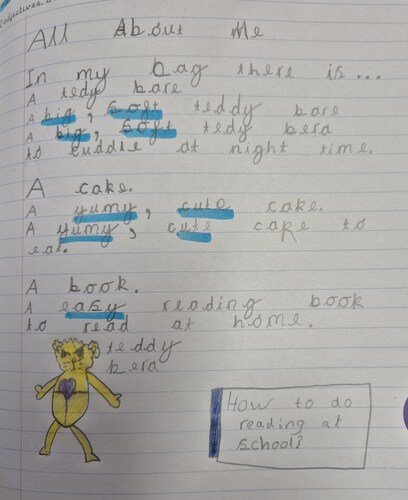 Adjectives.
All About Me
In my bag there is...
A tedy bare
A big, soft teddy bare
A big, soft tedy bera
to cuddle at night time.
A cake.
A yumy, cute cake.
A yumy, cute cake to
eat.
A book.
A easy reading book
to read at home.
teddy
bera
How to do
reading at
school?